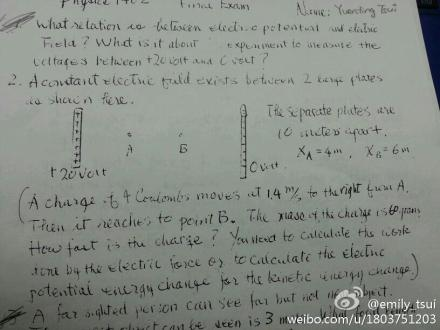 Physics 1402 Final Exam Name: Yuanting Tsui
1. What relation is between electric potential and electric
Field? What is it about experiment to measure the
voltages between +20 volt and 0 volt?
2. A constant electric field exists between 2 large plates
as shown here.
The separate plates are
10 meters apart.
A B
XA = 4m, XB = 6m
+20 volt
0 volt
(A charge of 4 Coulombs moves at 1.4 m/s to the right from A.
Then it reaches to point B. The mass of the charge is 60 grams
How fast is the charge? You need to calculate the work
done by the electric force or to calculate the electric
potential energy change for the kinetic energy change.)
A far sighted person can see far but not object.
object can be seen is 3
@emily_tsui
weibo.com/u/1803751203